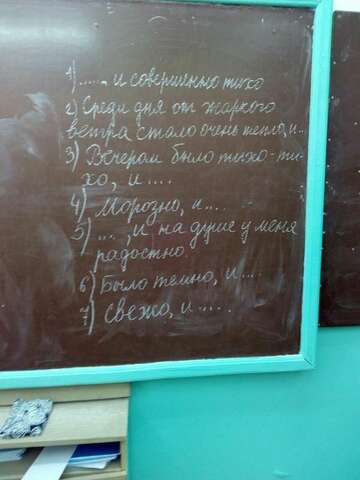 1) ..... и совершенно тихо
2) Среди дня от жаркого
ветра стало очень тепло, и..
3) Вечером было тихо-ти-
хо, и ....
4) Морозно, и ....
5) ... , и на душе у меня
радостно.
6) Было темно, и ....
7) Свежо, и .....